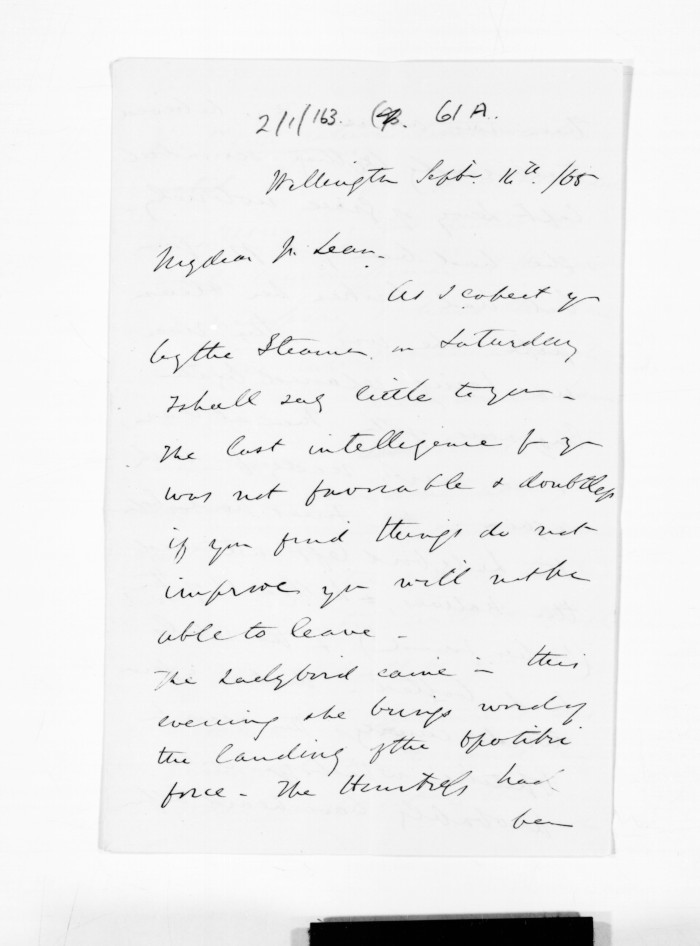 2/1/163. 61A.
Wellington Septr. 16th. /65
My dear Mc Lean.
As I expect yo
by the Steamer on Saturday
I shall say little to you -
The last intelligence fr yo
was not favorable & doubtless
if you find things do not
improve you will not be
able to leave -
The Ladybird came in this
evening she brings word of
the landing of the Opotiki
force - The Huntress had
been